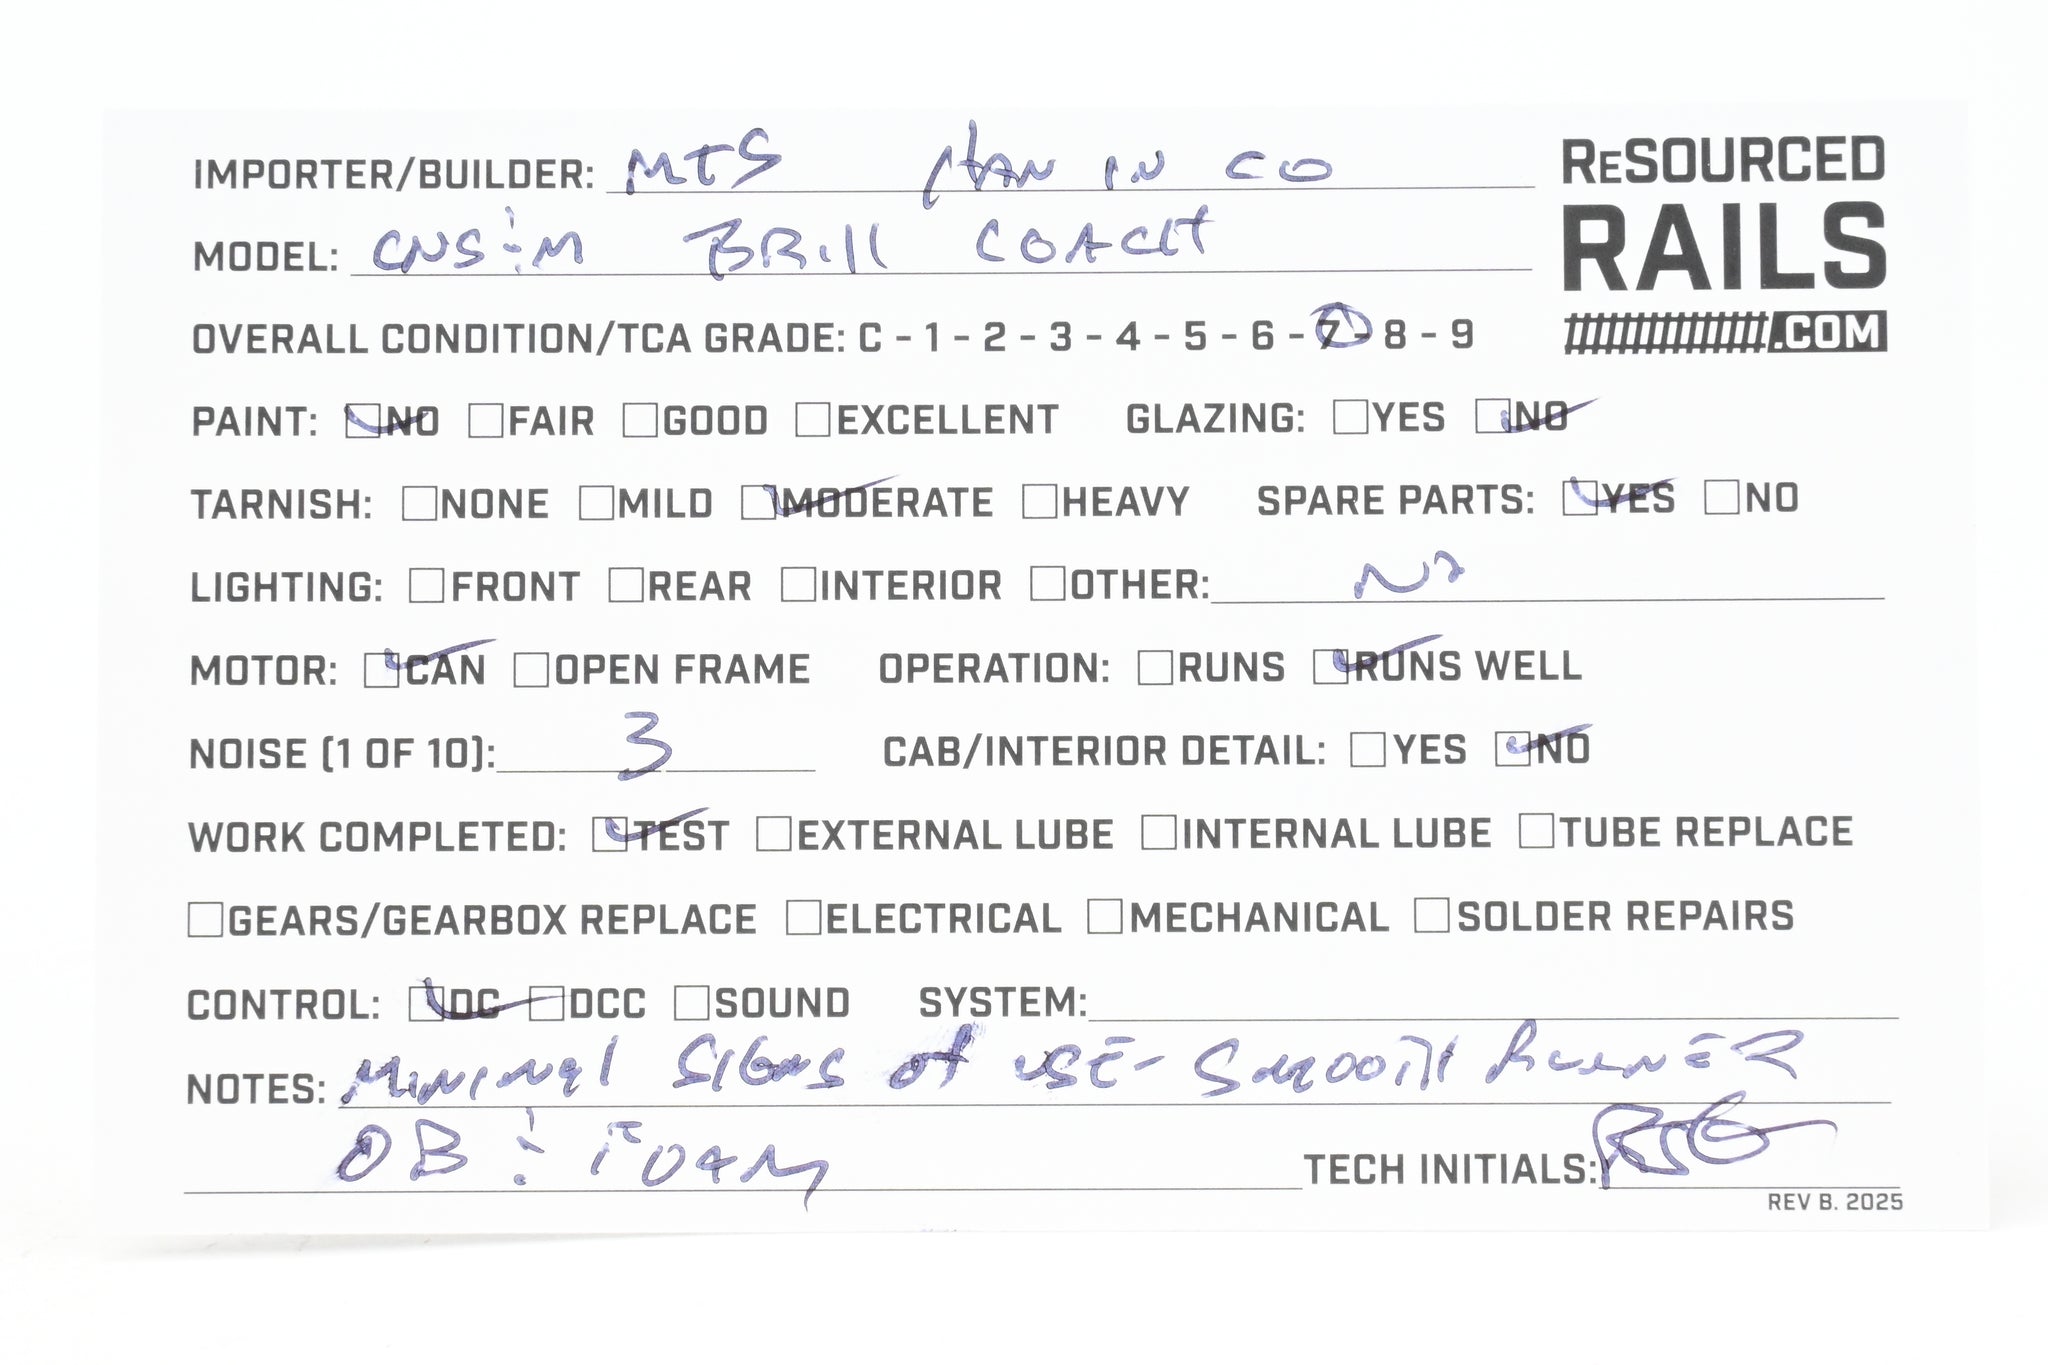 IMPORTER/BUILDER: MTS HAN IN CO
MODEL: CNS&M BRILL COACH
ReSOURCED
RAILS
.COM
OVERALL CONDITION/TCA GRADE: C - 1 - 2 - 3 - 4 - 5 - 6 - 7 - 8 - 9
PAINT: NO FAIR GOOD EXCELLENT GLAZING: YES NO
TARNISH: NONE MILD MODERATE HEAVY SPARE PARTS: YES NO
LIGHTING: FRONT REAR INTERIOR OTHER:
MOTOR: CAN OPEN FRAME OPERATION: RUNS RUNS WELL
NOISE (1 OF 10): 3 CAB/INTERIOR DETAIL: YES NO
WORK COMPLETED: TEST EXTERNAL LUBE INTERNAL LUBE TUBE REPLACE
GEARS/GEARBOX REPLACE ELECTRICAL MECHANICAL SOLDER REPAIRS
CONTROL: DC DCC SOUND SYSTEM:
NOTES: MINIMAL SIGNS OF USE - SMOOTH RUNNER
OB & FOAM TECH INITIALS:
REV B. 2025